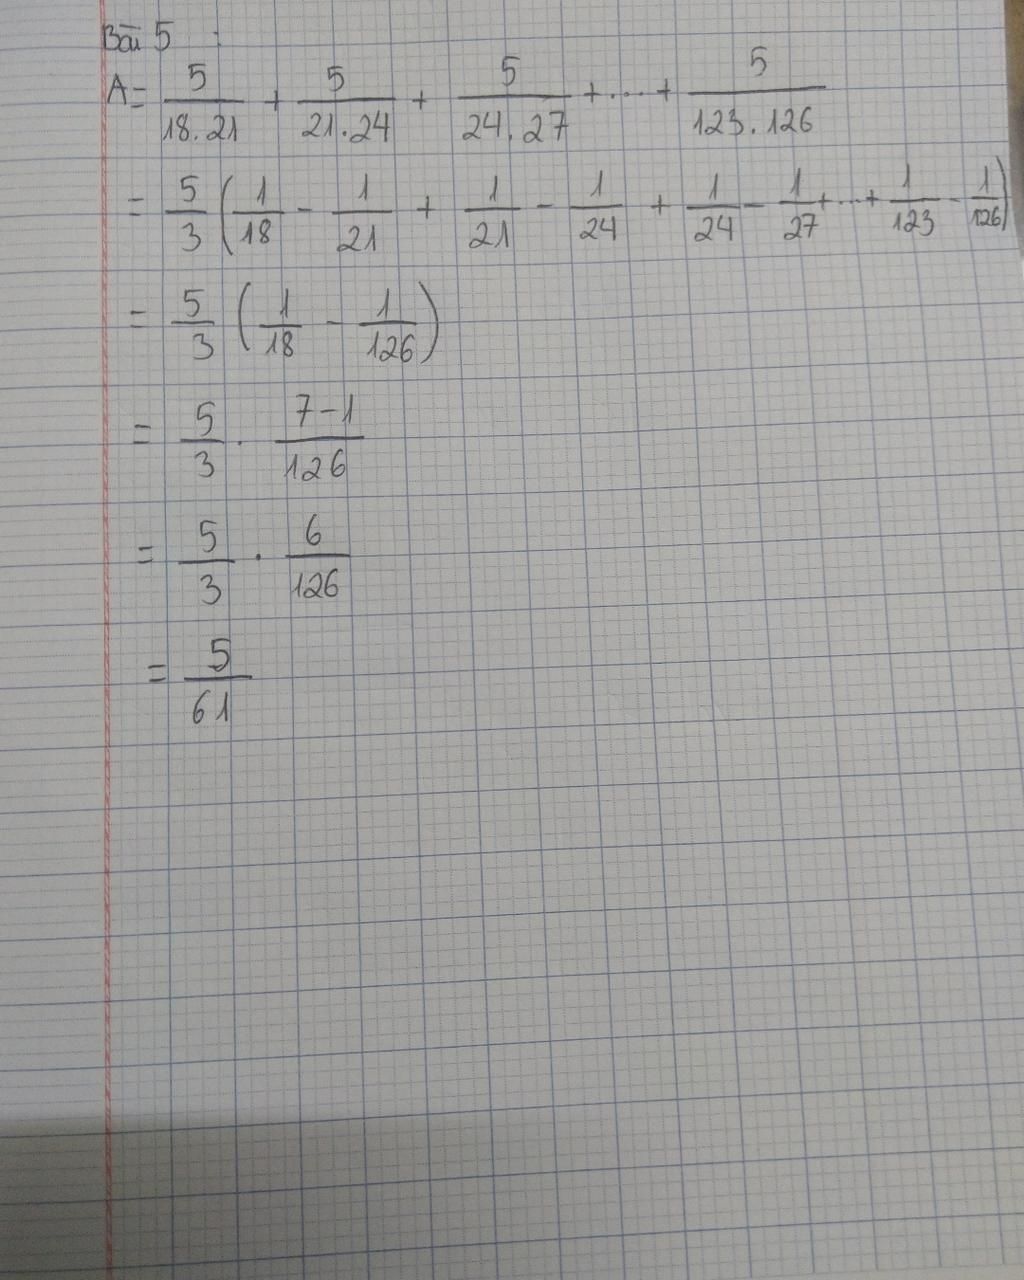 Bài 5 :
A = 5/18.21 + 5/21.24 + 5/24.27 + .... + 5/123.126
= 5/3 (1/18 - 1/21 + 1/21 - 1/24 + 1/24 - 1/27 + ... + 1/123 - 1/126)
= 5/3 (1/18 - 1/126)
= 5/3 . 7-1/126
= 5/3 . 6/126
= 5/61